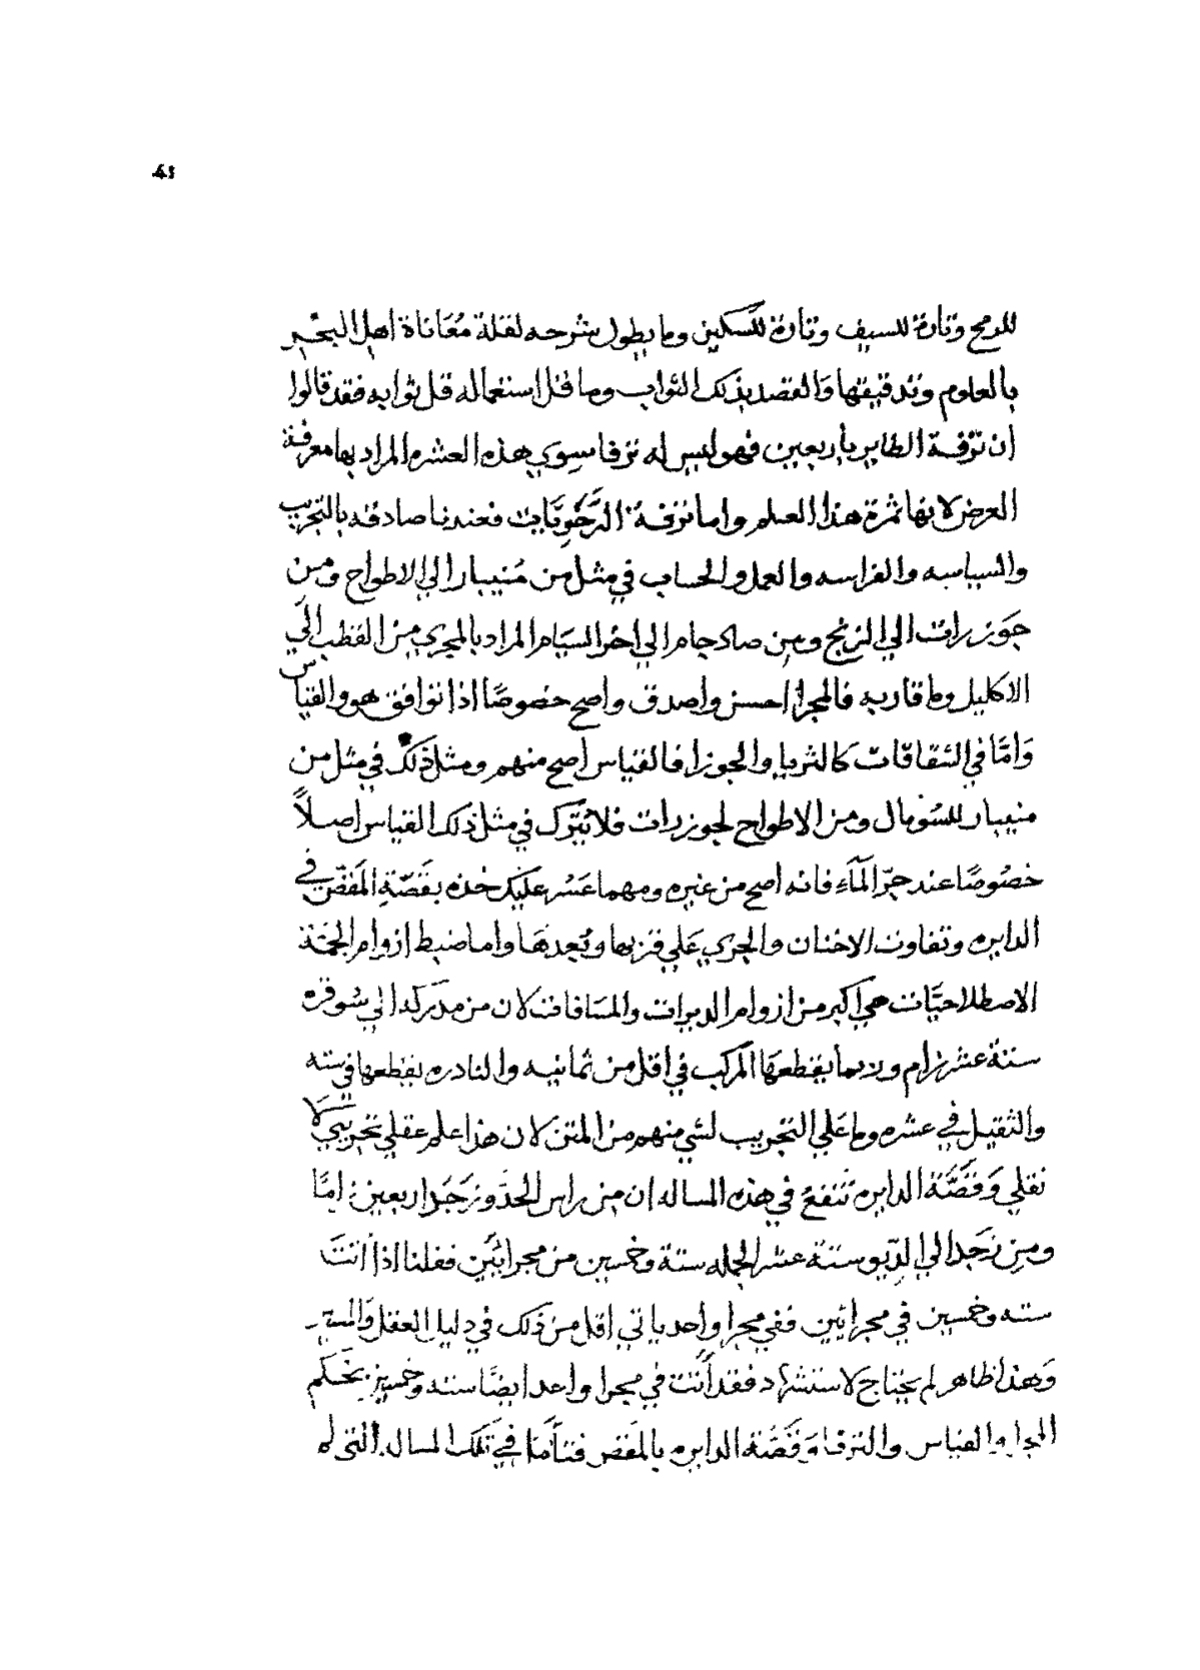 41
للرمح وتارة للسيف وتارة للسكين وما يطول شرحه لقلة مُعَاناة اهل البحر
بالعلوم وتدقيقها وَالقصد بذلك الثواب وما قل استعماله قل ثوابه فقد قالوا
ان ترفة الطاير باربعين فهو ليس له ترفا سوي هذه العشره المراد بها معرفة
العرض لانها ثمرة هذا العلم واما ترفة الدَّخُوِيَّات فعندنا صادقه بالتجريب
والسياسه والفراسه والعمل والحساب في مثل من مُنيبار الي الاطواح ومن
جَوَزرات الي الزنج ومن صاد جام الي اخر السيام المراد بالمجري من القطب الَي
الاكليل وما قاربه فالمجرا احسن واصدق واصح خصوصًا اذا توافق هو والقياس
وَامَّا في الشقاقات كالثريا والجوزا فالقياس اصح منهم ومثل ذلك في مثل من
منيبار للسُومال ومن الاطواح لجوزرات فلا يُترك في مثل ذلك القياس اصلاً
خصُوصًا عند جرّ المآء فانه اصح من غيره ومهما عَسُر عليك خذه بقَصّةِ المَقصّ في
الدايره وتفاوت الاخنان والجري عَلي قربها وبُعدهَا واما ضبط ازوام الجمَّة
الاصطلاحيَّات هي اكبر من ازوام الديرات والمسَافات لان من مدَركه الي سُوقره
ستة عشر زام وربما يقطعهَا المركب في اقل من ثمانيه والنادره يقطعها في سته
والثقيل في عشره وما عَلي التجريب لشي منهم من المتن لان هذا علم عقلي تجريبي لا
نقلي وَقَصَّة الدايره تَنفعُ في هذه المساله ان من راس الحدّ وزَجَد اربعين زامًا
ومن زَجَد الي الدِّيو ستة عشر الجمله ستة وخمسين من مجرائَين فقلنا اذا اتتَ
سته وخمسين في مجرائين ففي مجرا واحد ياتي اقل من ذلك في دليل العقل
وَهذا ظاهر لم يحتاج لاستشهاد فقد أتت في مجرا واحد ايضًا سته وخمسين بحَكم
المجرا والقياس والترفا وَقَصَّة الدايره بالمقص فتأمَّل في تلك المساله التي له